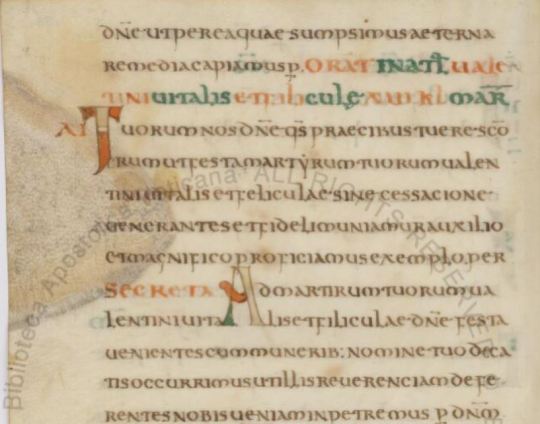 dn̄e utpereaquae sumpsimus aeterna
remedia capiamus p. ORAT INATL UALE
TINI UITALIS ET FILICULĘ XVI KL MAR̄
AI TUorum nos dn̄e qs̄ praecibus tuere scō
rum ut festa martyrum tuorum ualen
tini uitalis et feliculae sine cessacione
uenerantes et fideli muniamur auxilio
et magnifico proficiamus exemplo, per
SECRETA Ad martirum tuorum ua
lentini uitalis et filiculae dn̄e festa
uenientes cum muneribː nomine tuo dica
tis occurrimus ut illis reuerenciam defe
rentes nobis ueniam inpetremus p dn̄m
Biblioteca Apostolica Vaticana ALL RIGHTS RESERVED